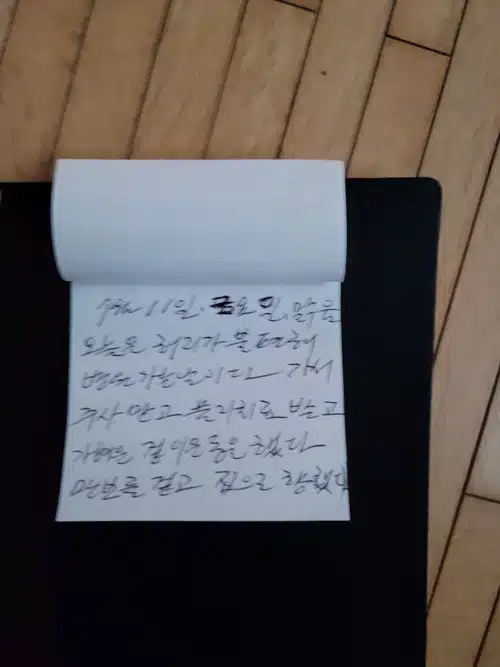 11일. 금요일, 맑음
오늘은 허리가 불편해
병원 가는 날이다. 가서
주사 맞고 물리치료 받고
가벼운 걷이운동을 했다
만보를 걷고 집으로 향했다